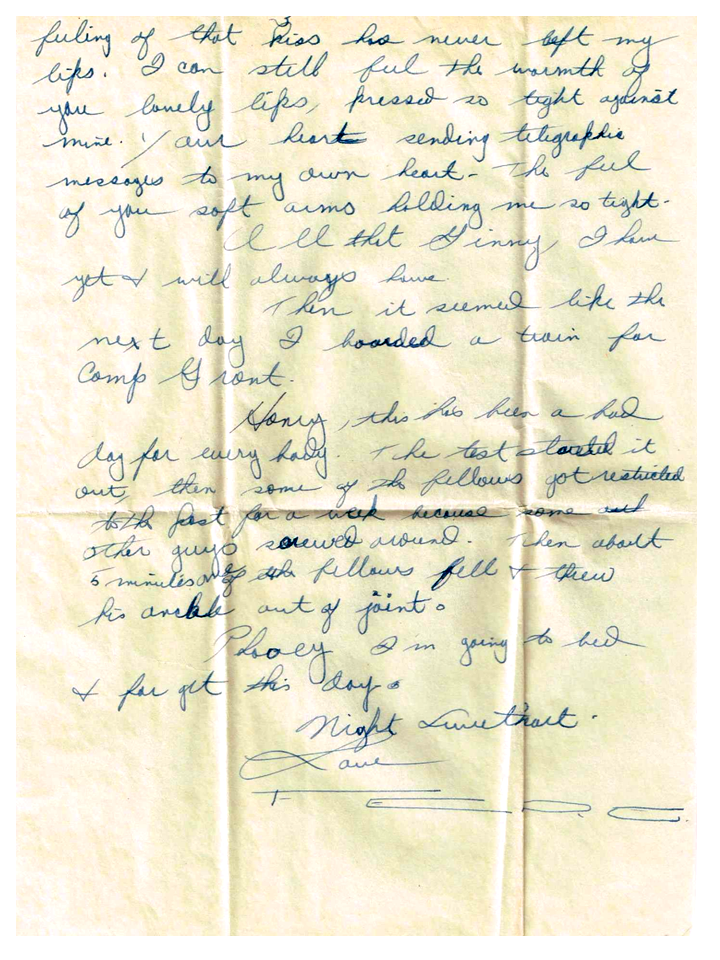 3
feeling of that kiss has never left my
lips. I can still feel the warmth of
you lonely lips, pressed so tight against
mine. Your heart sending telegraphic
messages to my own heart. The feel
of you soft arms holding me so tight.
All that Ginny, I have
yet & will always have.
Then it seemed like the
next day I boarded a train for
Camp Grant.
Honey, this has been a bad
day for every body. The test started it
out, then some of the fellows got restricted
to the post for a week because some
other guys screwed around. Then about
5 minutes of the fellows fell & threw
his ankle out of joint.
Phooey I'm going to bed
& for get this day.
Night Sweetheart.
Love